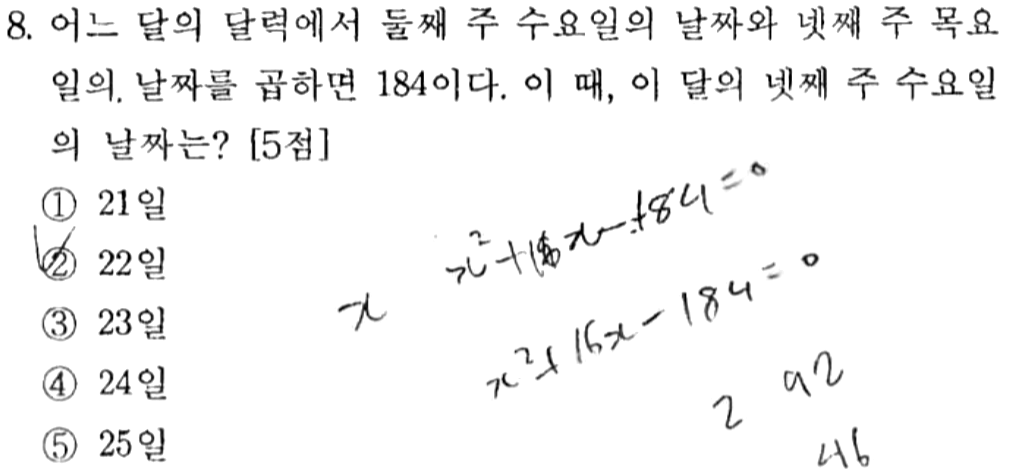 8. 어느 달의 달력에서 둘째 주 수요일의 날짜와 넷째 주 목요
일의. 날짜를 곱하면 184이다. 이 때, 이 달의 넷째 주 수요일
의 날짜는? [5점]
① 21일
② 22일
③ 23일
④ 24일
⑤ 25일
x
x²+16x-184=0
x²+16x-184=0
2 92
46